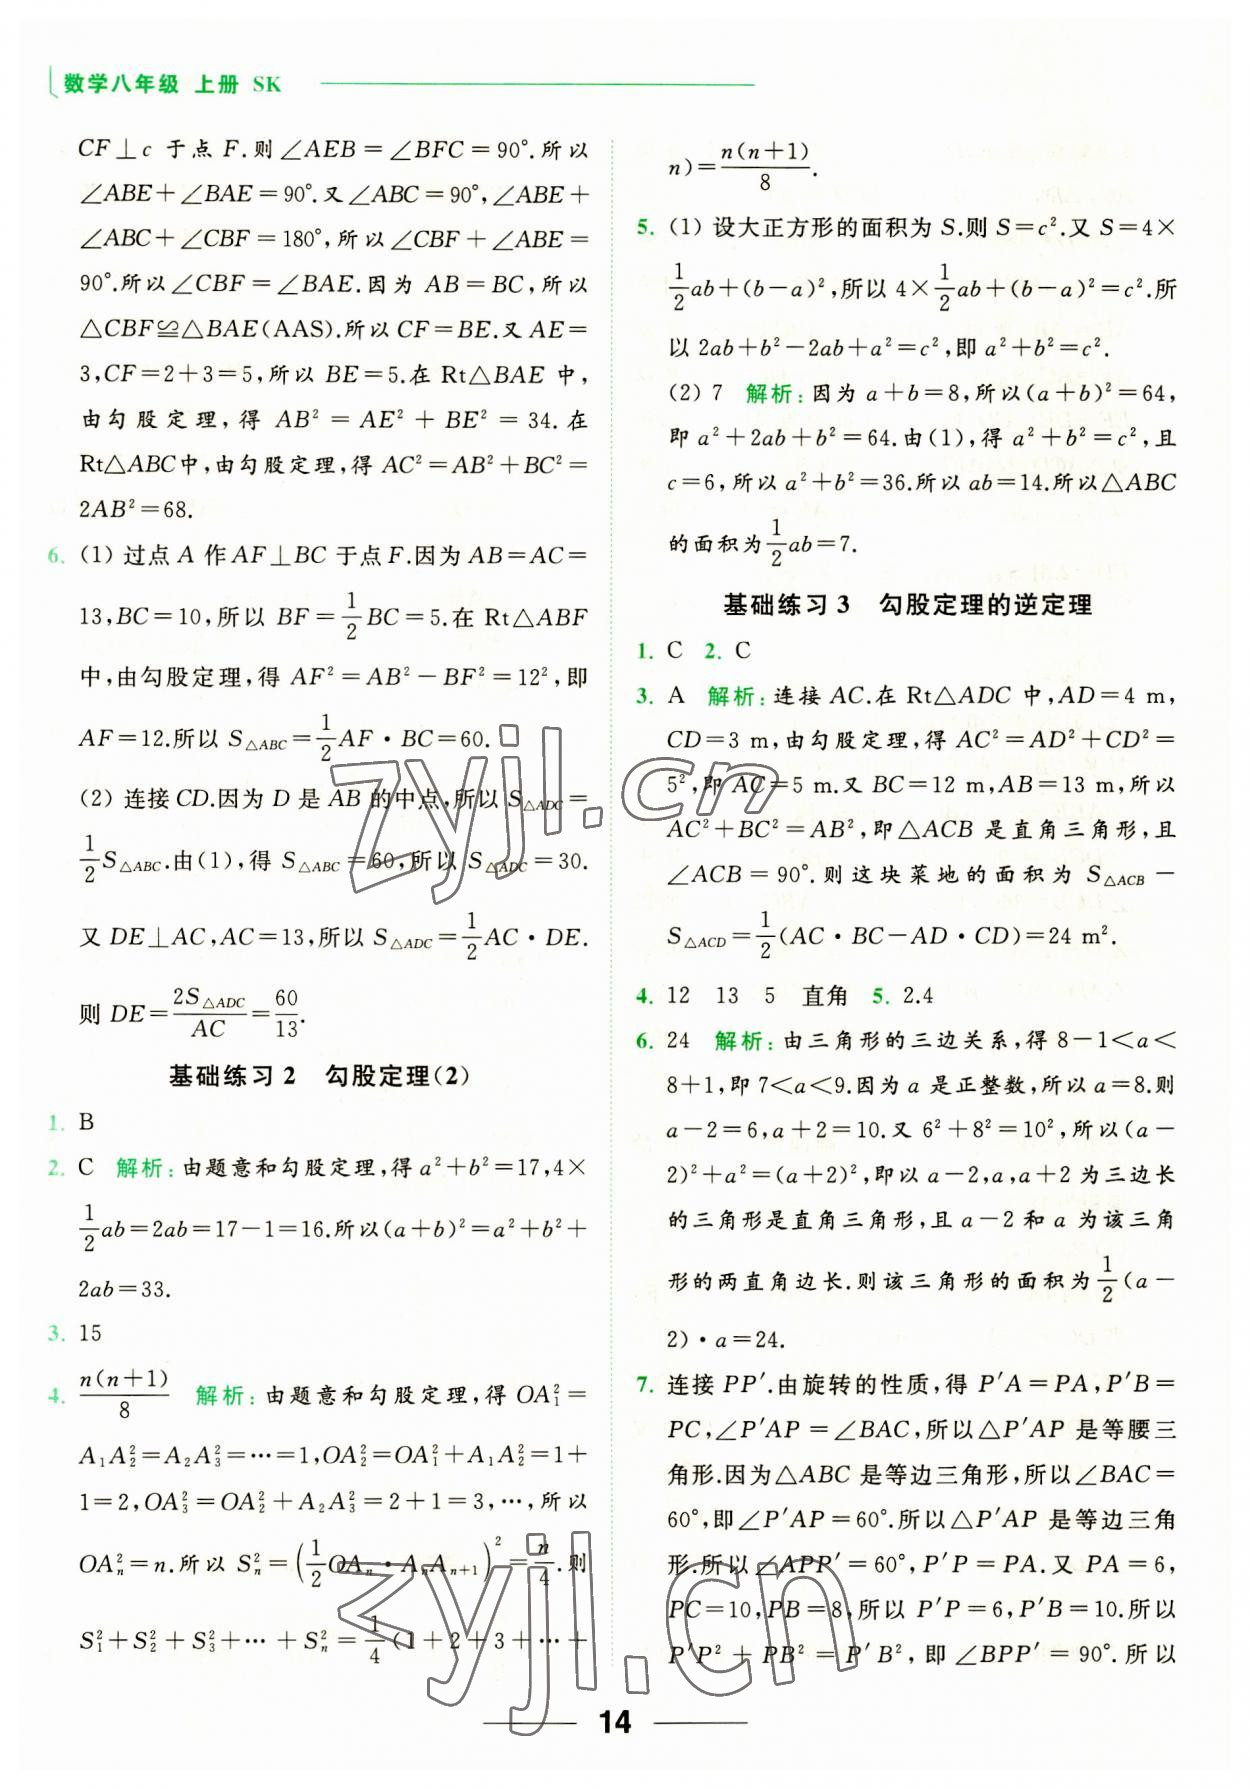 数学八年级 上册 SK
CF⊥c 于点 F.则∠AEB=∠BFC=90°.所以
∠ABE+∠BAE=90°.又∠ABC=90°,∠ABE+
∠ABC+∠CBF=180°,所以∠CBF+∠ABE=
90°.所以∠CBF=∠BAE.因为 AB=BC,所以
△CBF≌△BAE(AAS).所以 CF=BE.又 AE=
3,CF=2+3=5,所以 BE=5.在 Rt△BAE 中,
由勾股定理,得 AB²=AE²+BE²=34.在
Rt△ABC中,由勾股定理,得 AC²=AB²+BC²=
2AB²=68.
6. (1) 过点 A 作 AF⊥BC 于点 F.因为 AB=AC=
13,BC=10,所以 BF=1/2 BC=5.在 Rt△ABF
中,由勾股定理,得 AF²=AB²-BF²=12²,即
AF=12.所以 S△ABC=1/2 AF·BC=60.
(2) 连接 CD.因为 D 是 AB 的中点,所以 S△ADC=
1/2 S△ABC.由(1),得 S△ABC=60,所以 S△ADC=30.
又 DE⊥AC,AC=13,所以 S△ADC=1/2 AC·DE.
则 DE=2S△ADC/AC=60/13.
基础练习 2 勾股定理(2)
1. B
2. C 解析:由题意和勾股定理,得 a²+b²=17,4×
1/2 ab=2ab=17-1=16.所以(a+b)²=a²+b²+
2ab=33.
3. 15
4. n(n+1)/8 解析:由题意和勾股定理,得 OA₁²=
A₁A₂²=A₂A₃²=…=1,OA₂²=OA₁²+A₁A₂²=1+
1=2,OA₃²=OA₂²+A₂A₃²=2+1=3,…,所以
OAₙ²=n.所以 Sₙ²=(1/2 OAₙ·AₙAₙ₊₁)²=n/4.则
S₁²+S₂²+S₃²+…+Sₙ²=1/4(1+2+3+…+
n)=n(n+1)/8.
5. (1) 设大正方形的面积为 S.则 S=c².又 S=4×
1/2 ab+(b-a)²,所以 4×1/2 ab+(b-a)²=c².所
以 2ab+b²-2ab+a²=c²,即 a²+b²=c².
(2) 7 解析:因为 a+b=8,所以(a+b)²=64,
即 a²+2ab+b²=64.由(1),得 a²+b²=c²,且
c=6,所以 a²+b²=36.所以 ab=14.所以△ABC
的面积为1/2 ab=7.
基础练习 3 勾股定理的逆定理
1. C 2. C
3. A 解析:连接 AC.在 Rt△ADC 中,AD=4 m,
CD=3 m,由勾股定理,得 AC²=AD²+CD²=
5²,即 AC=5 m.又 BC=12 m,AB=13 m,所以
AC²+BC²=AB²,即△ACB 是直角三角形,且
∠ACB=90°.则这块菜地的面积为 S△ACB-
S△ACD=1/2(AC·BC-AD·CD)=24 m².
4. 12 13 5 直角 5. 2.4
6. 24 解析:由三角形的三边关系,得 8-1<a<
8+1,即 7<a<9.因为 a 是正整数,所以 a=8.则
a-2=6,a+2=10.又 6²+8²=10²,所以(a-
2)²+a²=(a+2)²,即以 a-2,a,a+2 为三边长
的三角形是直角三角形,且 a-2 和 a 为该三角
形的两直角边长.则该三角形的面积为1/2(a-
2)·a=24.
7. 连接 PP′.由旋转的性质,得 P′A=PA,P′B=
PC,∠P′AP=∠BAC,所以△P′AP 是等腰三
角形.因为△ABC 是等边三角形,所以∠BAC=
60°,即∠P′AP=60°.所以△P′AP 是等边三角
形.所以∠APP′=60°,P′P=PA.又 PA=6,
PC=10,PB=8,所以 P′P=6,P′B=10.所以
P′P²+PB²=P′B²,即∠BPP′=90°.所以
14
zyjl.cn
zyjl.cn